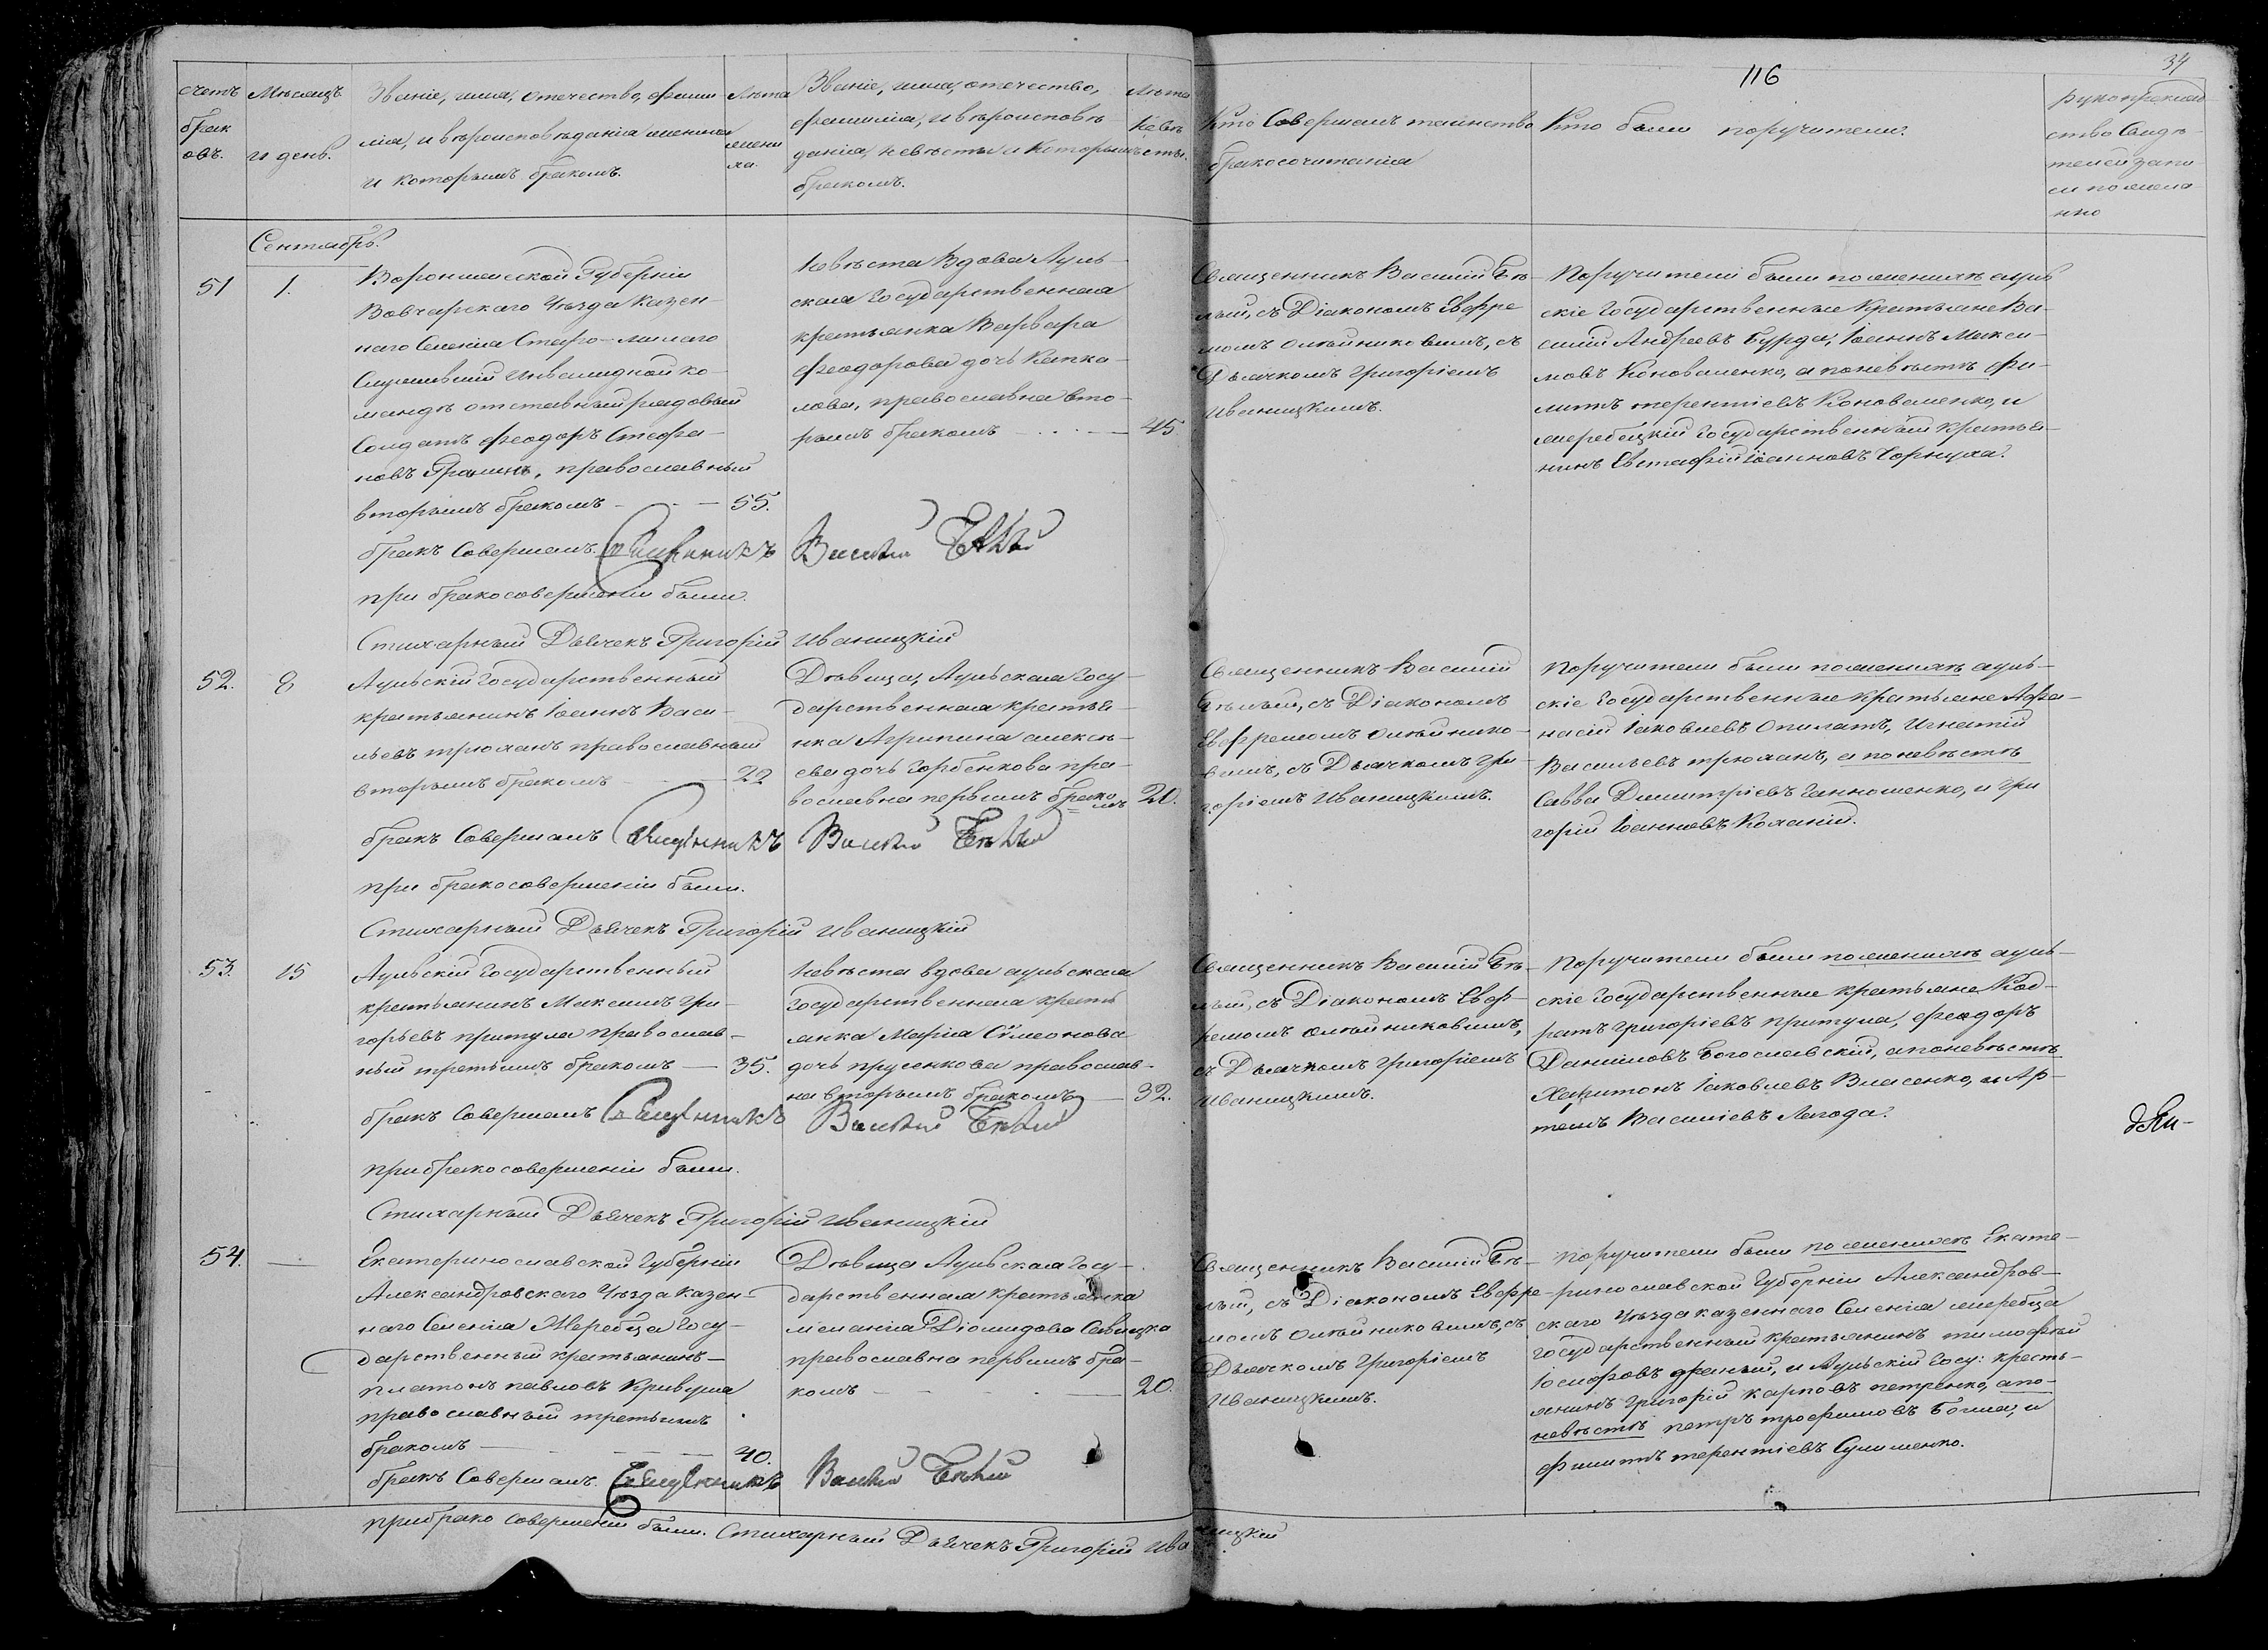 116
34
счетъ
брак
овъ.
Мѣсяцъ
и день.
Званіе, имя, отечество, фами
лія, и вѣроисповѣданія жениха
и которымъ бракомъ.
Лѣта
жени
ха.
Званіе, имя, отечество,
фамилія, и вѣроисповѣ
данія, невѣсты и которымъ
бракомъ.
Лѣта
невѣ
сты.
Кто Совершалъ таинство
бракосочитанія
Кто были поручители.
рукоприклад
ство Свидѣ
телей запи
си по жела
нію
Сентябрь.
51
1.
Воронежской Губерніи
Вовчарскаго Уѣзда Казен-
наго Селенія Старо-
Служившій Инвалидной ко-
мандѣ отставный рядовый
Солдатъ Феодоръ Стефа-
новъ православный
вторымъ бракомъ
55.
Невѣста Вдова Ауль-
ская Государственная
крестьянка Варвара
Феодорова дочь
православна вто-
рымъ бракомъ
45.
Священникъ Василій Бѣ-
лый, съ Діакономъ Евфре
момъ Олѣйниковимъ, съ
Дьячкомъ Григоріемъ
Иваницкимъ.
Поручители были по женихѣ ауль
скіе Государственные Крестьяне Ва-
силій Андреевъ Бурда, Іоаннъ Макси-
мовъ Коноваленко, а по невѣстѣ Фи-
липъ терентіевъ Коноваленко, и
жеребецкій Государственный крестья-
нинъ Евстафій Іоанновъ Чорнуха.
бракъ Совершалъ. Священникъ Василій Бѣлый
при бракосовершеніи были.
Стихарный Дьячекъ Григорій Иваницкій
52.
8
Аульскій Государственный
крестьянинъ Іоаннъ Васи-
льевъ трюханъ православный
вторымъ бракомъ
22
Дѣвица, Аульская Госу-
дарственная крестья-
нка Агрипина алексѣ-
ева дочь Горбенкова пра-
вославна первымъ брако
мъ
20.
Священникъ Василій
Бѣлый, съ Діакономъ
Евфремомъ Олѣйнико-
вимъ, съ Дьячкомъ Гри-
горіемъ Иваницкимъ.
Поручители были по женихѣ ауль-
скіе Государственные крестьяне Афа-
насій Іаковлевъ Опилатъ, Игнатій
Васильевъ трюханъ, а по невѣстѣ
Савва Димитріевъ Ганношенко, и Гри
горій Іоанновъ
бракъ Совершалъ Священникъ Василій Бѣлый
при бракосовершеніи были.
Стихарный Дьячекъ Григорій Иваницкій
53.
15
Аульскій Государственный
крестьянинъ Максимъ Гри-
горьевъ притула православ-
ный третьимъ бракомъ
35.
Невѣста вдова аульская
Государственная кресть
янка Марія Сѵмеонова
дочь прусенкова православ-
на вторымъ бракомъ
32.
Священникъ Василій Бѣ-
лый, съ Діакономъ Евф-
ремомъ Олѣйниковимъ,
съ Дьячкомъ Григоріемъ
Иваницкимъ.
Поручители были по женихѣ ауль-
скіе Государственные крестьяне Код-
ратъ Григоріевъ притула, Феодоръ
Даніиловъ Богославскій, а по невѣстѣ
Харитонъ Іаковлевъ Власенко, и Ар-
темъ Василіевъ Лагода.
бракъ Совершалъ Священникъ Василій Бѣлый
при бракосовершеніи были.
Стихарный Дьячекъ Григорій Иваницкій
54.
Екатеринославской Губерніи
Александровскаго Уѣзда казен-
наго Селенія Жеребца Госу-
дарственный крестьянинъ
платонъ павловъ Кривуша
православный третьимъ
бракомъ
40.
Дѣвица Аульская Госу-
дарственная крестьянка
меланія Діомидова Савицка
православна первымъ бра-
комъ
20.
Священникъ Василій Бѣ-
лый, съ Діакономъ Евфре-
момъ Олѣйниковимъ, съ
Дьячкомъ Григоріемъ
Иваницкимъ.
Поручители были по женихѣ Екате-
ринославской Губерніи Александров-
скаго Уѣзда казеннаго Селенія жеребца
государственный крестьянинъ тимофѣй
Іосифовъ и Аульскій Госу: кресть-
янинъ Григорій карповъ петренко, а по-
невѣстѣ петръ трофимовъ и
филипъ терентіевъ
бракъ Совершалъ. Священникъ Василій Бѣлый
при бракосовершеніи были. Стихарный Дьячекъ Григорій Иваницкій